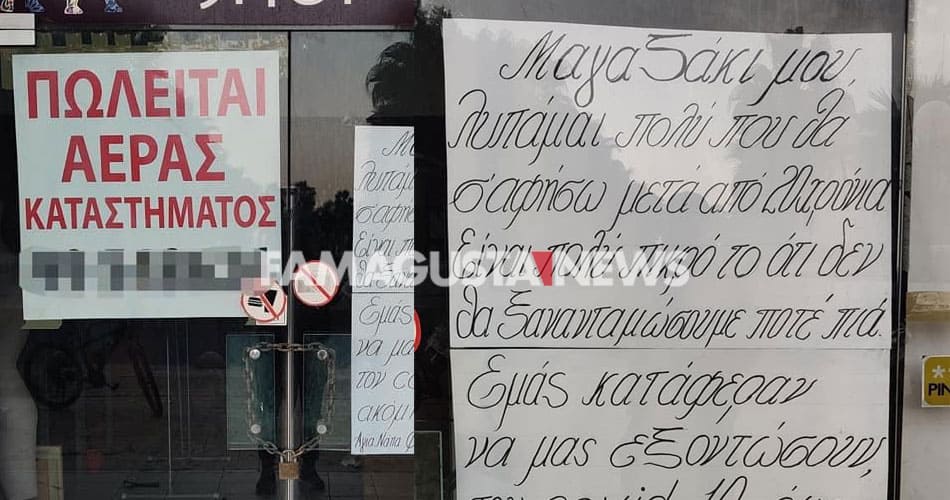 ΠΩΛΕΙΤΑΙ
ΑΕΡΑΣ
ΚΑΤΑΣΤΗΜΑΤΟΣ
Μαγαζάκι μου,
λυπάμαι πολύ που θα
σ'αφήσω μετά από 22 χρόνια
Είναι πολύ πικρό το ότι δεν
θα ξαναανταμώσουμε ποτέ πιά.
Εμάς κατάφεραν
να μας εξοντώσουν,
Μα
λυπάμαι
σ'αφήσ
Είναι π
Εμάς
να μα
τον co
ακόμ
Αγία Νάπα
FAMAGUSTA NEWS
PIN